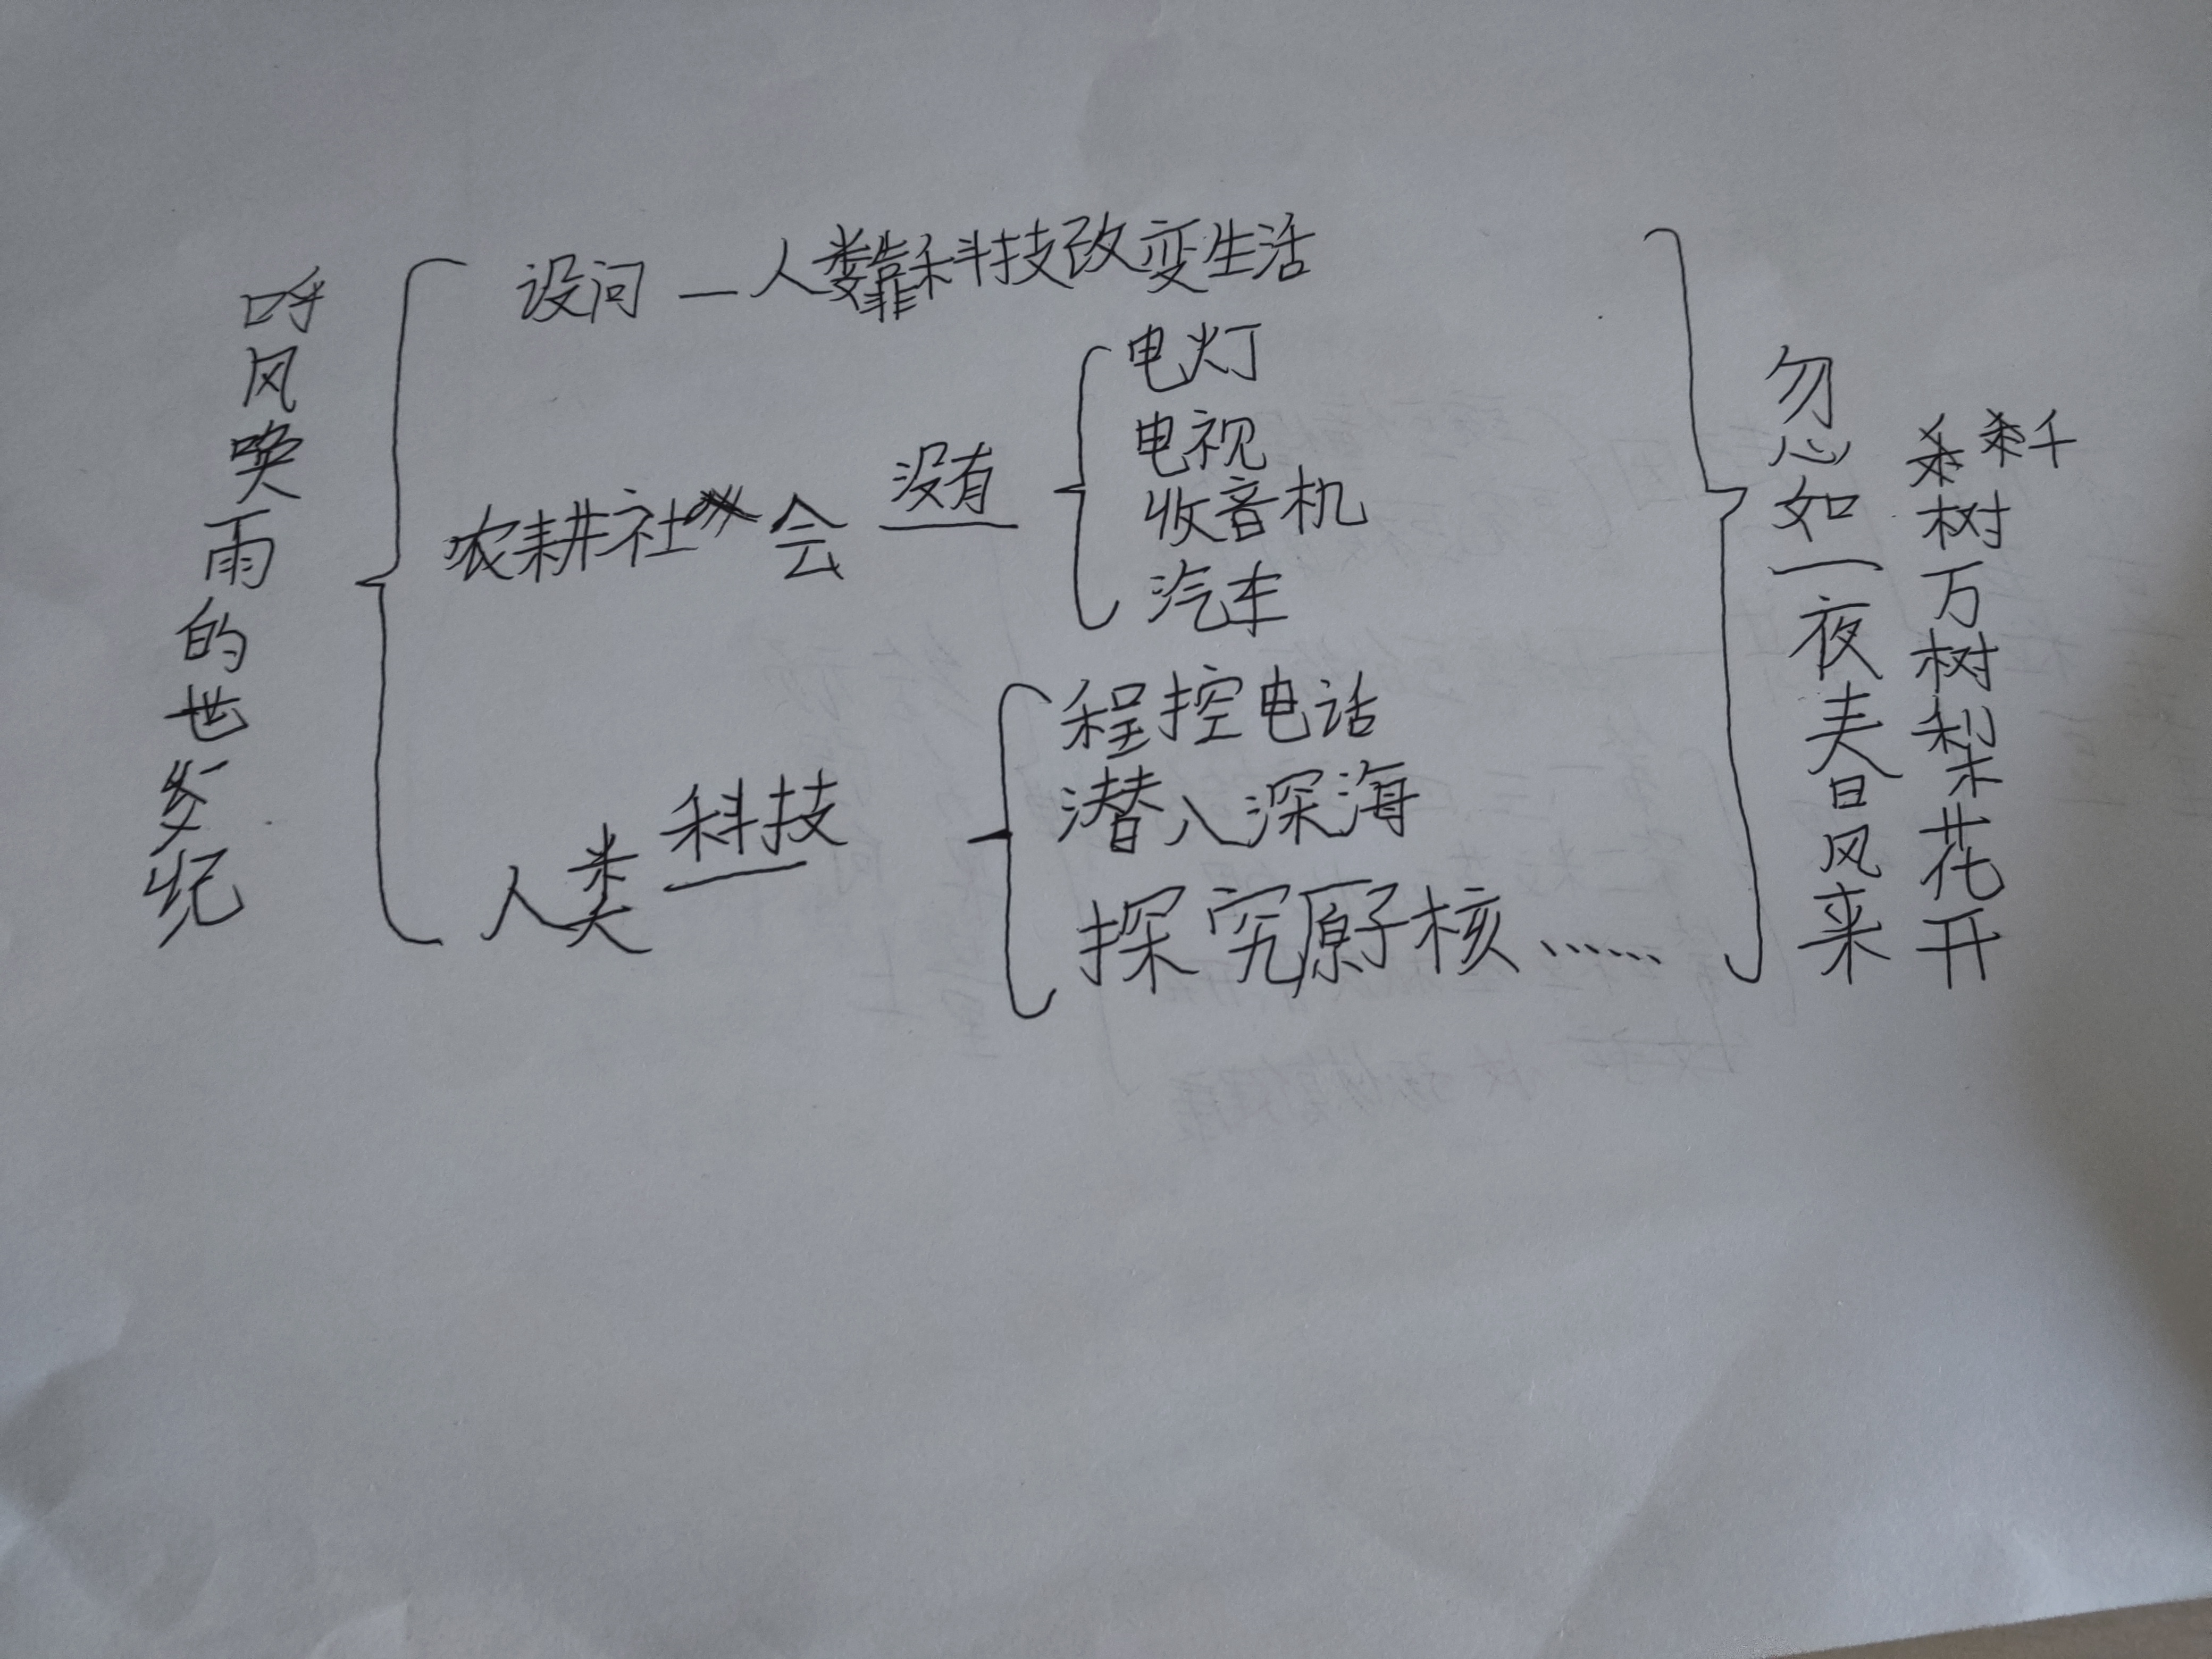 呼风唤雨的世纪
设问—人类靠科技改变生活
农耕社会 没有
电灯
电视
收音机
汽车
人类 科技
程控电话
潜入深海
探究原子核……
忽如一夜春风来
千树万树梨花开